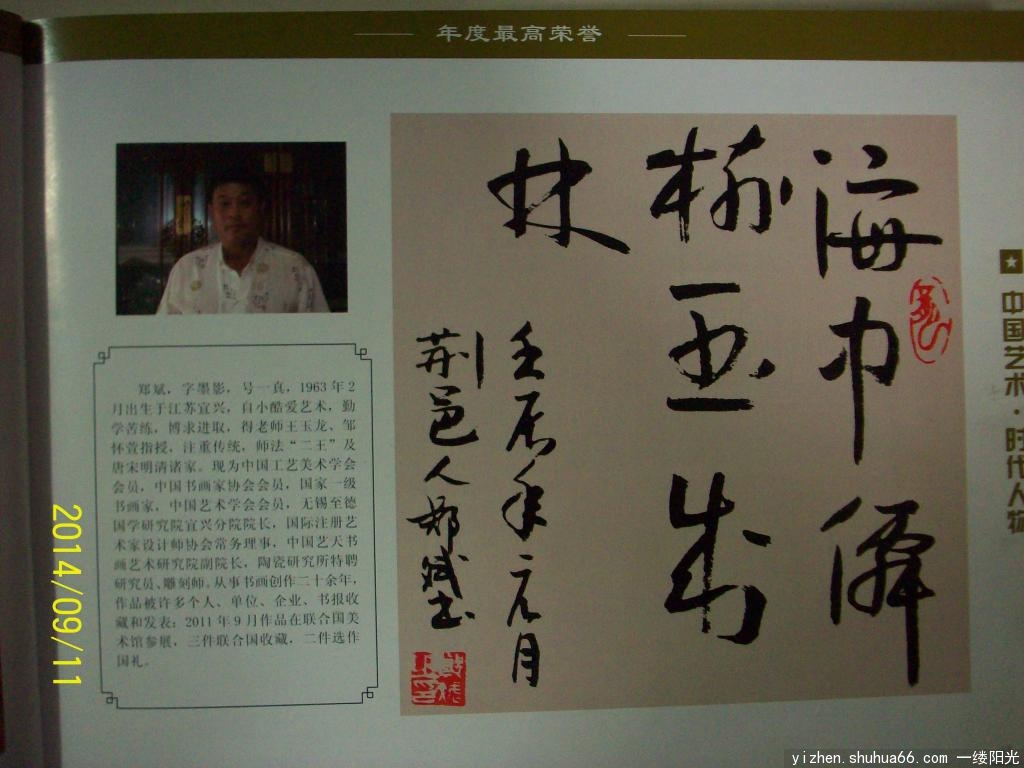 年度最高荣誉
郑斌，字墨影，号一真，1963年2
月出生于江苏宜兴，自小酷爱艺术，勤
学苦练，博求进取，得老师王玉龙、邹
怀萱指授，注重传统，师法“二王”及
唐宋明清诸家。现为中国工艺美术学会
会员，中国书画家协会会员，国家一级
书画家，中国艺术学会会员，无锡至德
国学研究院宜兴分院院长，国际注册艺
术家设计师协会常务理事，中国艺天书
画艺术研究院副院长，陶瓷研究所特聘
研究员、雕刻师。从事书画创作二十余年，
作品被许多个人、单位、企业、书报收
藏和发表；2011年9月作品在联合国美
术馆参展，三件联合国收藏，二件选作
国礼。
海巾
林
壬辰年元月
荆邑人郑斌书
中国艺术·时代人物
2014/09/11
yizhen.shuhua66.com 一缕阳光